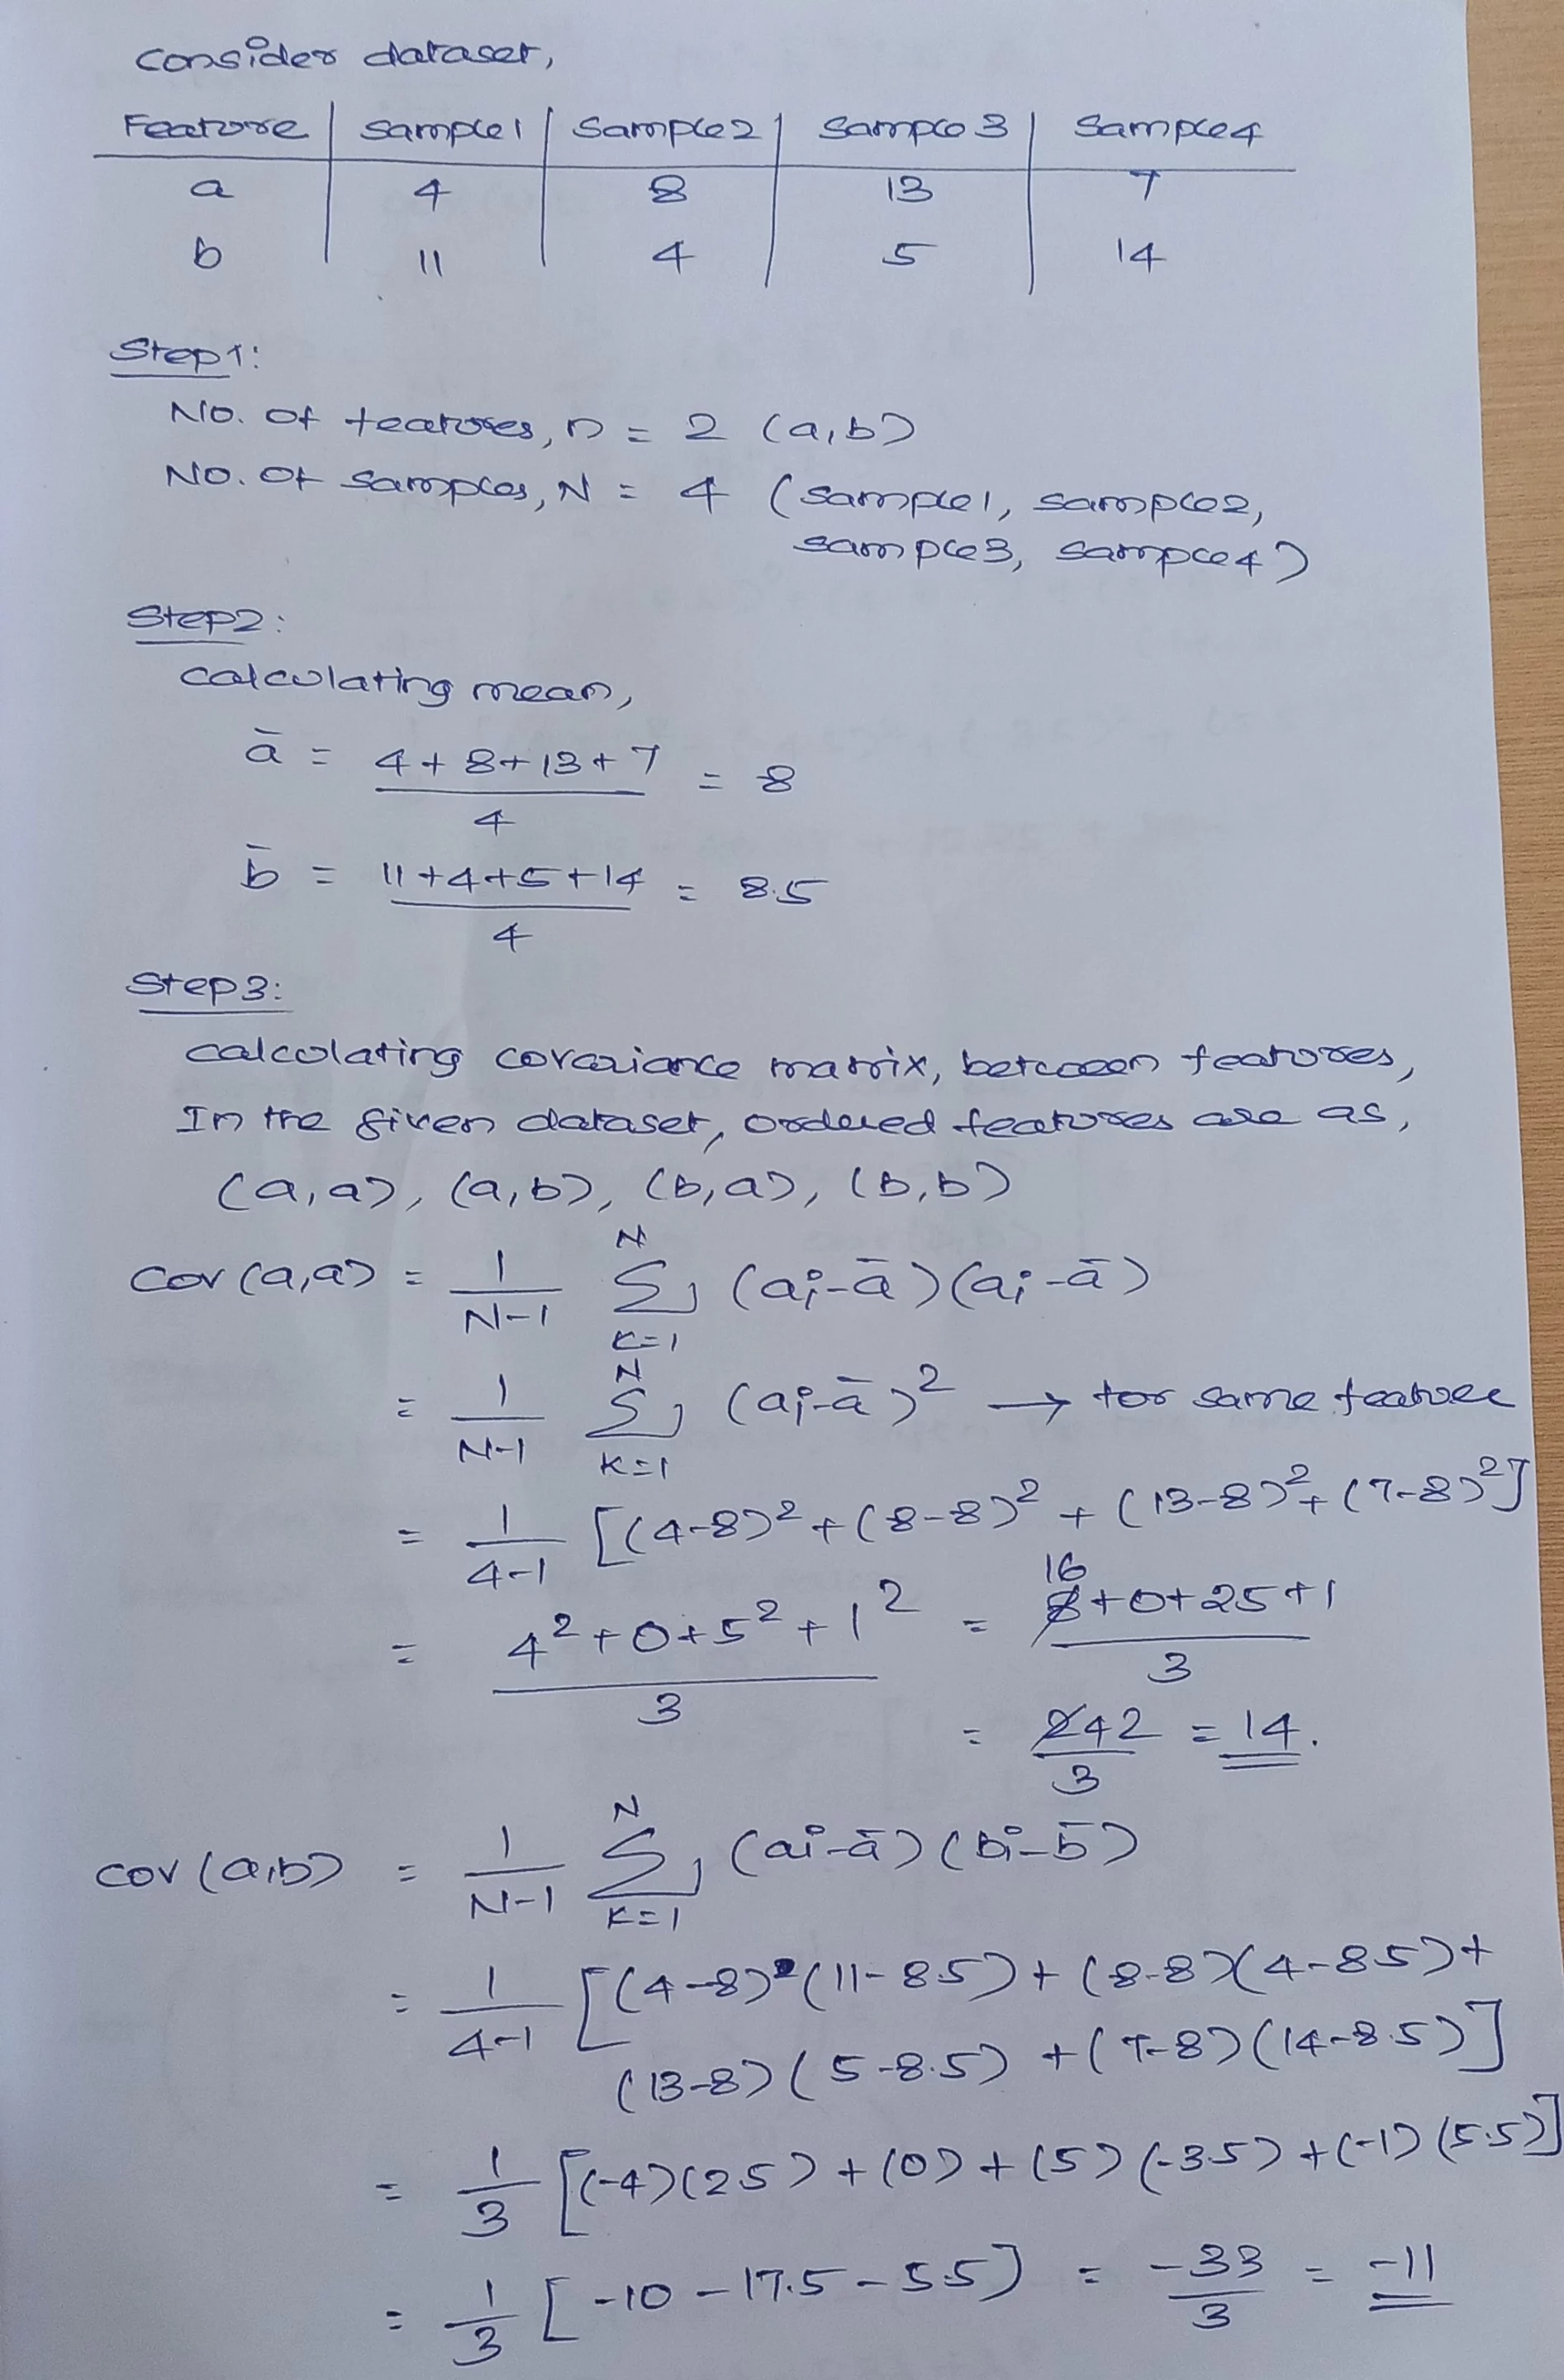 Consider dataset,
Feature | sample1 | sample2 | sample3 | sample4
a | 4 | 8 | 13 | 7
b | 11 | 4 | 5 | 14
Step1:
No. of features, n = 2 (a,b)
No. of samples, N = 4 (sample1, sample2,
sample3, sample4)
Step2:
calculating mean,
ā = 4+8+13+7 / 4 = 8
b̄ = 11+4+5+14 / 4 = 8.5
Step3:
calculating covariance matrix, between features,
In the given dataset, ordered features are as,
(a,a), (a,b), (b,a), (b,b)
Cov (a,a) = 1/N-1 N Σ K=1 (ai-ā)(ai-ā)
= 1/N-1 N Σ K=1 (ai-ā)² → for same feature
= 1/4-1 [(4-8)²+(8-8)²+(13-8)²+(7-8)²]
= 4²+0+5²+1² / 3 = 16+0+25+1 / 3
= 42/3 = 14.
cov (a,b) = 1/N-1 N Σ K=1 (ai-ā)(bi-b̄)
= 1/4-1 [(4-8)(11-8.5)+(8-8)(4-8.5)+
(13-8)(5-8.5)+(7-8)(14-8.5)]
= 1/3 [(-4)(2.5)+(0)+(5)(-3.5)+(-1)(5.5)]
= 1/3 [-10-17.5-5.5] = -33/3 = -11